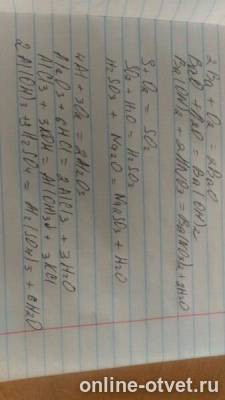 2Ba + O2 = 2BaO
BaO + H2O = Ba(OH)2
Ba(OH)2 + 2HNO3 = Ba(NO3)2 + 2H2O
S + O2 = SO2
SO2 + H2O = H2SO3
H2SO3 + Na2O = Na2SO3 + H2O
4Al + 3O2 = 2Al2O3
Al2O3 + 6HCl = 2AlCl3 + 3H2O
AlCl3 + 3KOH = Al(OH)3↓ + 3KCl
2Al(OH)3 + 3H2SO4 = Al2(SO4)3 + 6H2O
online-otvet.ru